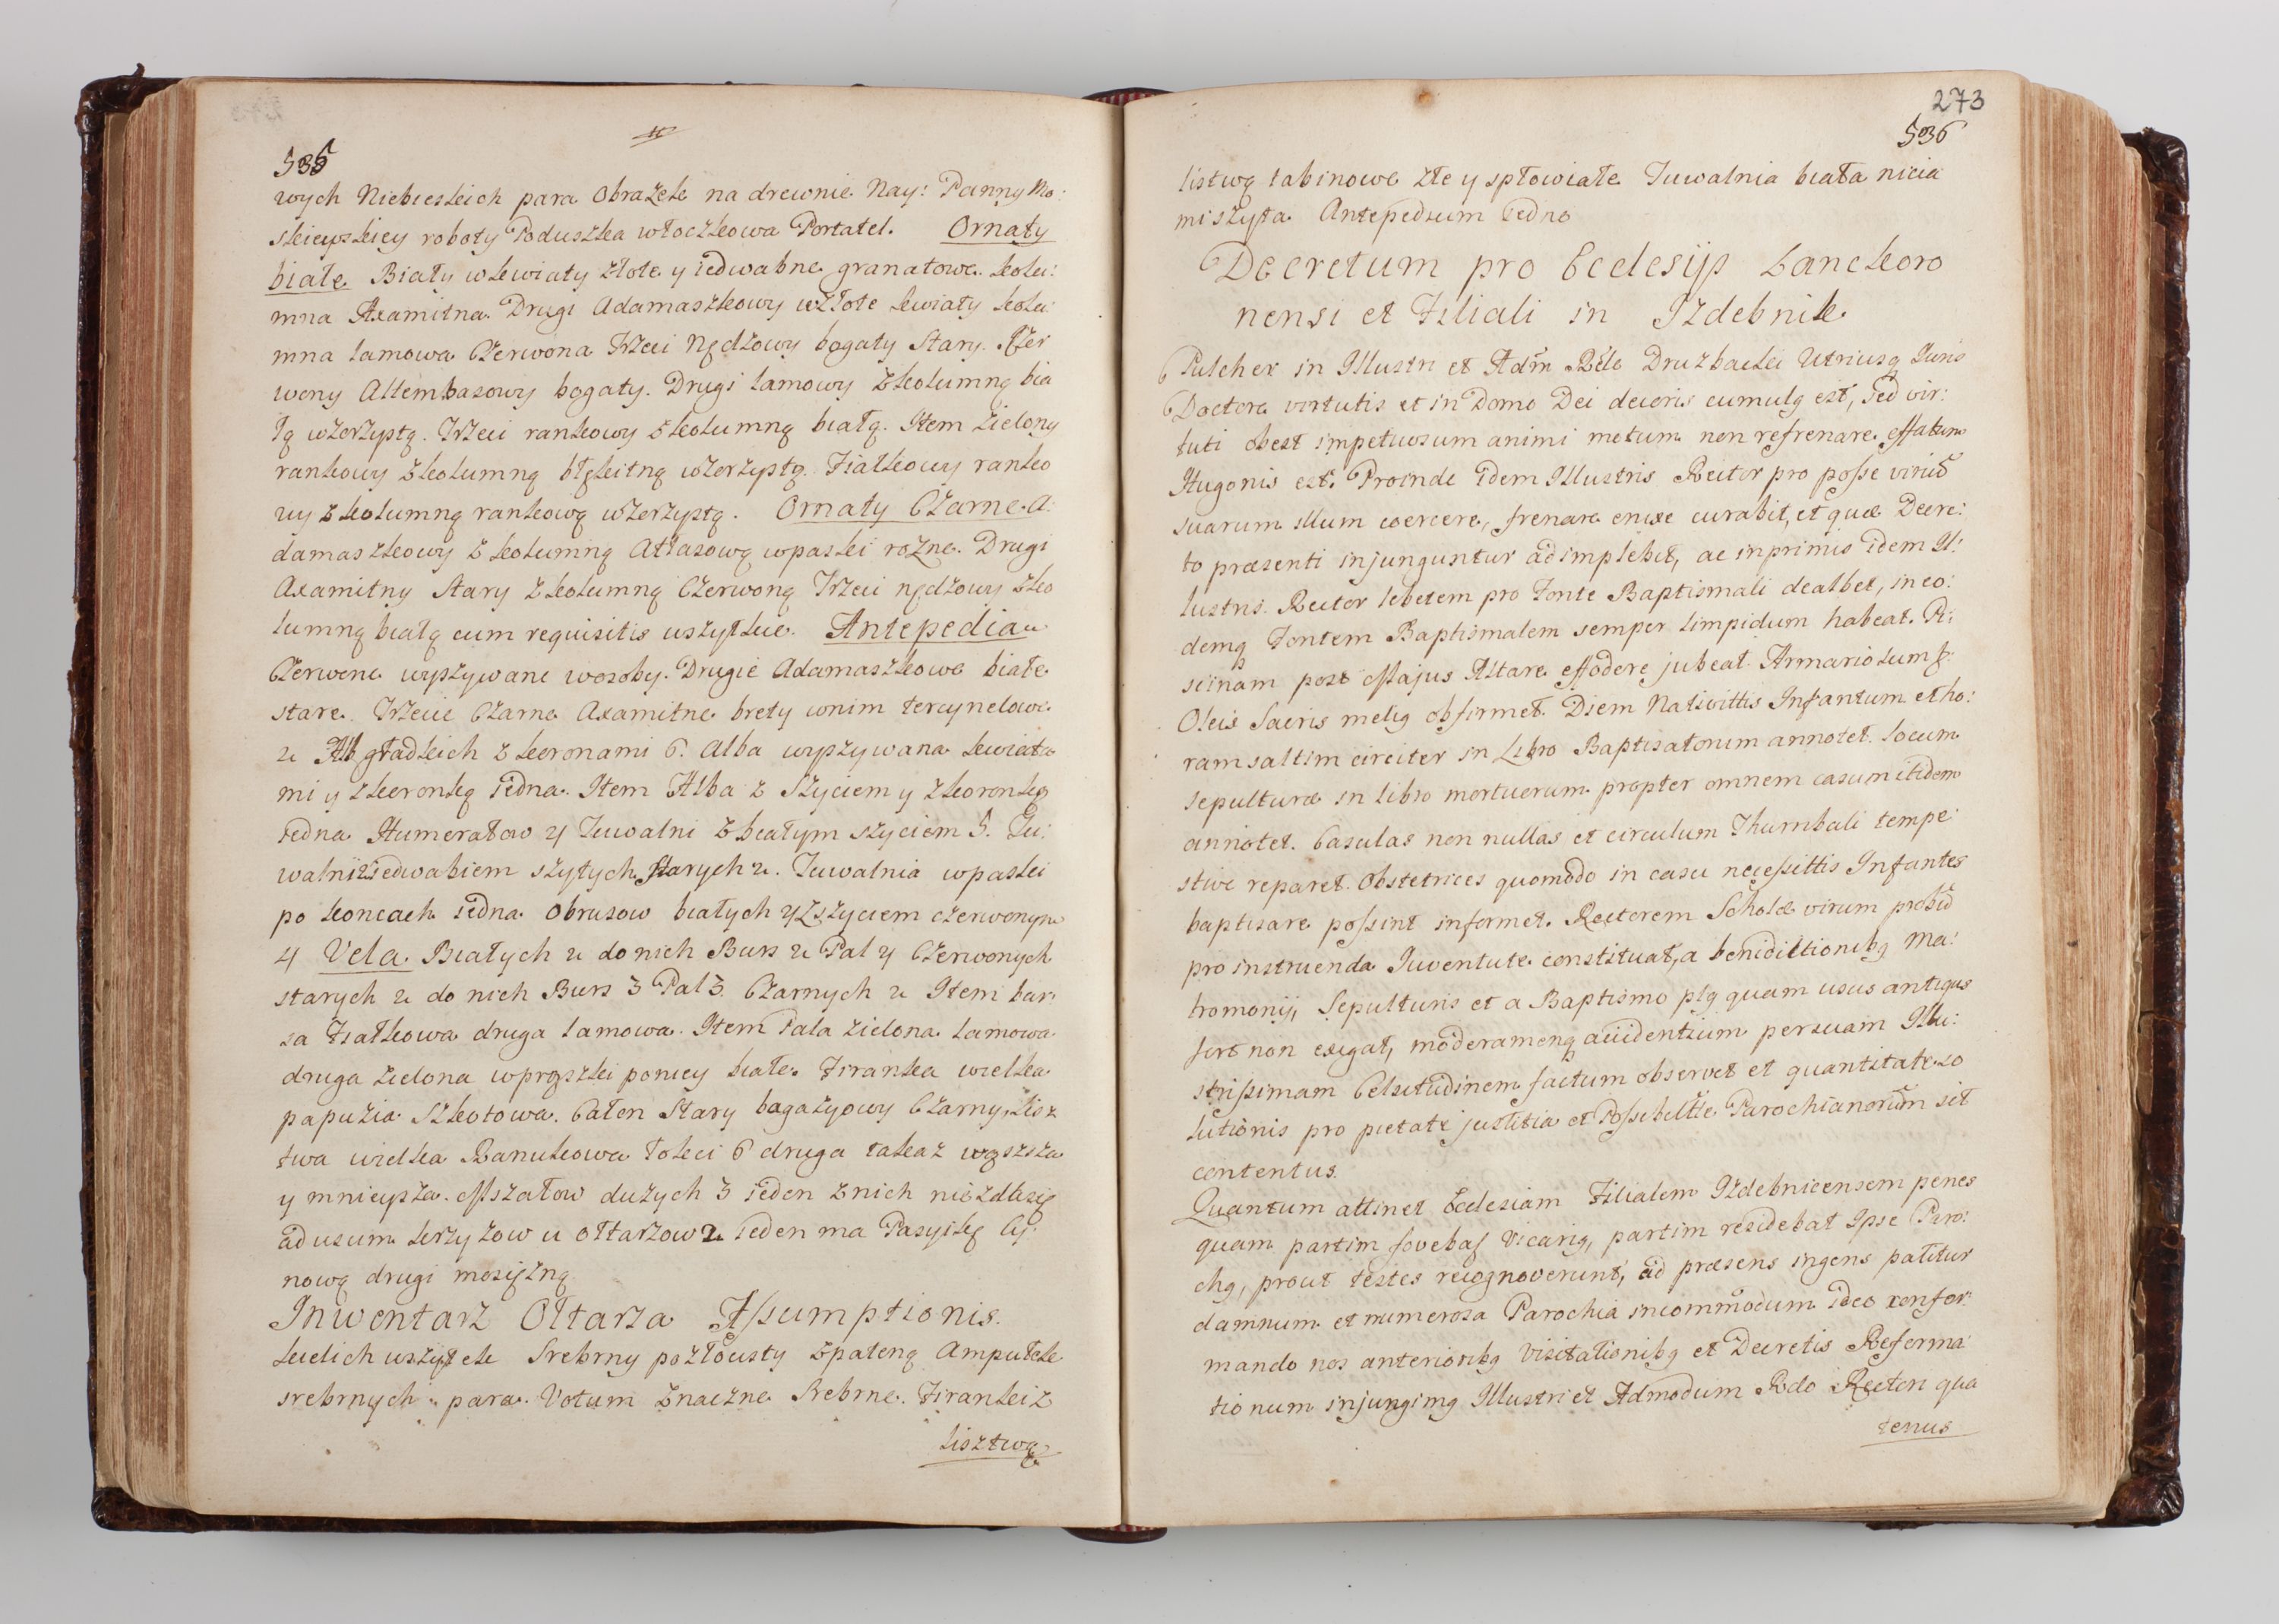 535
wych Niebieskich para Obrazek na drewnie Nay: Panny Mo:
skiewskiey roboty Poduszka włoczkowa Portatel. Ornaty
białe. Biały w kwiaty złote y iedwabne granatowe. kolu:
mna Axamitna. Drugi Adamaszkowy w złote kwiaty kolu:
mna lamowa Czerwona Trzeci Nędzowy bogaty Stary. Czer
wony Altembasowy bogaty. Drugi lamowy z kolumną bia
łą wzerzystą. Trzeci rankowy z kolumną białą. Item zielony
rankowy z kolumną błękitną wzerzystą. Fiałkowy ranko
wy z kolumną rankową wzerzystą. Ornaty Czarne. A:
damaszkowy z kolumną Atłasową w paski rożne. Drugi
Axamitny Stary z kolumną Czerwoną Trzeci nędzowy z ko
lumną białą cum requisitis wszytkie. Antepedia
Czerwone wyszywane w osoby. Drugie Adamaszkowe białe
stare. Trzecie Czarne Axamitne brety w nim tercynelowe
2 Alb gładkich z koronami 6. Alba wyszywana kwiata
mi y z koronką iedna. Item Alba z szyciem y z koronką
iedna Humerałow 4 Tuwalni z białym szyciem 5. Tu:
walni z iedwabiem szytych starych 2. Tuwalnia w paski
po koncach iedna Obrusow białych 4 z szyciem czerwonym
4 Vela. Białych 2 do nich Burs 2 Pal 4 Czerwonych
starych 2 do nich Burs 3 Pal 3. Czarnych 2 Item bur:
sa Fiałkowa druga lamowa. Item Pala zielona lamowa
druga zielona w prążki poniey białe. Firanka wielka
papuzia Szkotowa. Całun Stary bagazyowy Czarny, Lisz
twa wielka Ranukowa łokci 6 druga takaz węzsza
y mnieysza. Mszałow dużych 3 ieden z nich nie zda się
ad usum krzyżow u ołtarzow 2 ieden ma Pasyikę Cy:
nową drugi mosiężną
Inwentarz Ołtarza Assumptionis.
kielich wszytek Srebrny pozłocisty z pateną Ampułek
srebrnych para. Votum znaczne Srebrne. Firanki z
lisztwą
273
536
listwą tabinowe złe y spłowiałe Tuwalnia biała nicia
mi szyta Antepedium iedno
Decretum pro Ecclesijs Lanckoro
nensi et Filiali in Izdebnik
Pulcher in Illustri et Adm Rdo Druzbacki Utriusq Juris
Doctore virtutis et in Domo Dei decoris cumulq est, sed vir:
tuti obest impetuosum animi motum non refrenare. effatum
Hugonis est. Proinde idem Illustris Rector pro posse viriū
suarum illum coercere, frenare enixe curabit, et quæ Decre:
to præsenti injunguntur adimplebit, ac inprimis idem Il:
lustris Rector lebetem pro Fonte Baptismali dealbet, in eo:
demq Fontem Baptismalem semper limpidum habeat. Pi:
scinam post Majus Altare effodere jubeat. Armariolum p
Oleis Sacris meliq obfirmet. Diem Nativittis Infantum et ho:
ram saltim circiter in Libro Baptisatorum annotet. locum
sepulturæ in libro mortuorum propter omnem casum itidem
annotet. Casulas non nullas et circulum Thuribuli tempe:
stive reparet. Obstetrices quomodo in casu necessittis Infantes
baptisare possint informet. Rectorem Scholæ virum probū
pro instruenda Juventute constituat, a benidictionibq Ma:
tromonij, Sepulturis et a Baptismo plq quam usus antiqus
fert non exigat, moderamenq accidentium per suam Illu:
strissimam Celsitudinem factum observet et quantitate so
lutionis pro pietate justitia et Possibiltte Parochianorum sit
contentus.
Quantum attinet Ecclesiam Filialem Izdebnicensem penes
quam partim fovebat Vicariq, partim residebat Ipse Paro:
chq, prout testes recognoverunt, ad præsens ingens patitur
damnum et numerosa Parochia incommodum ideo confor:
mando nos anterioribq Visitationibq et Decretis Reforma
tionum injungimq Illustri et Admodum Rdo Rectori qua
tenus